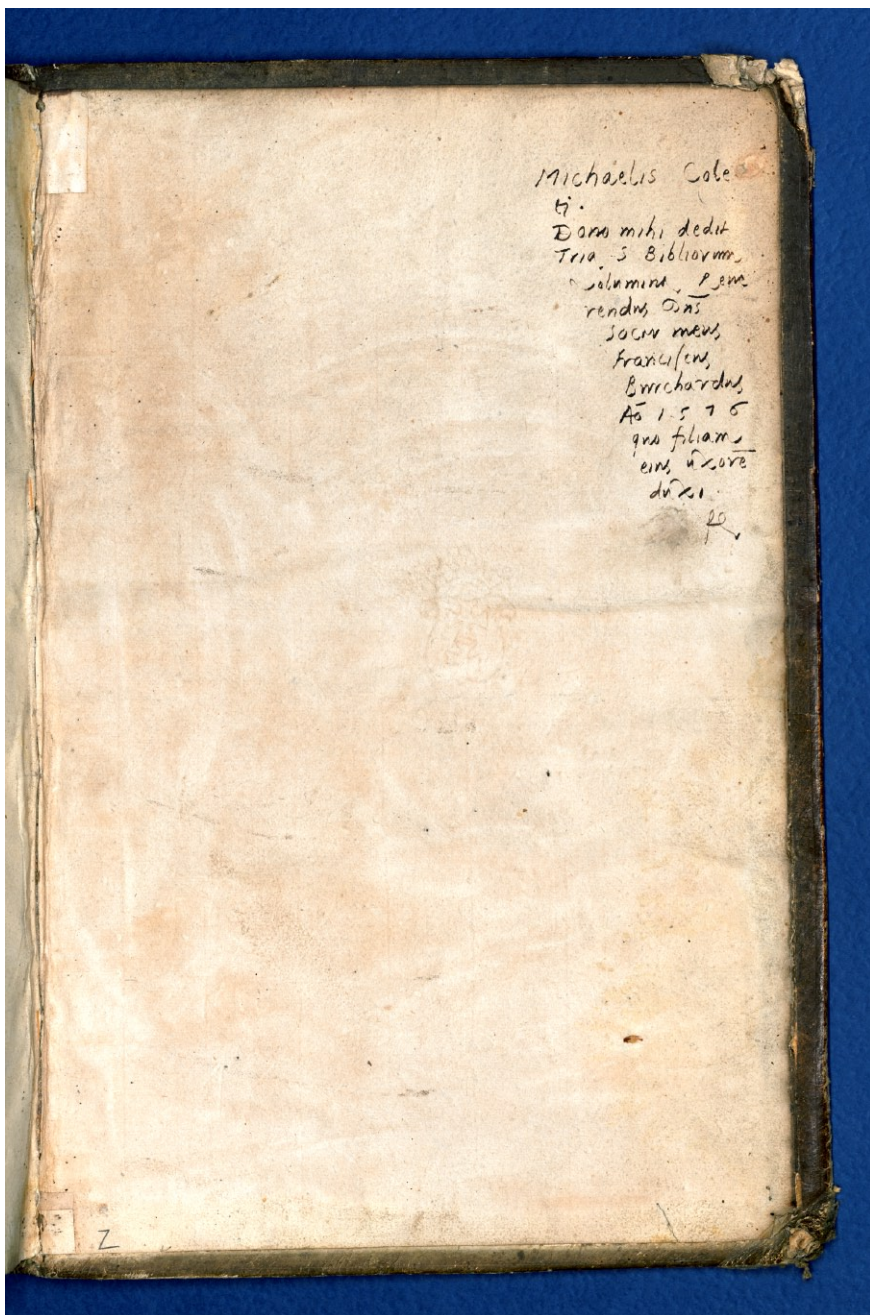 Michaelis Cole
tj.
Dono mihi dedit
Tria S Bibliorum
Volumina, Reve
rendus Dn̄s
Socer meus
Franciscus
Burchardus
Aō 1576
quo filiam
eius ŭxorē
dŭxi
Z